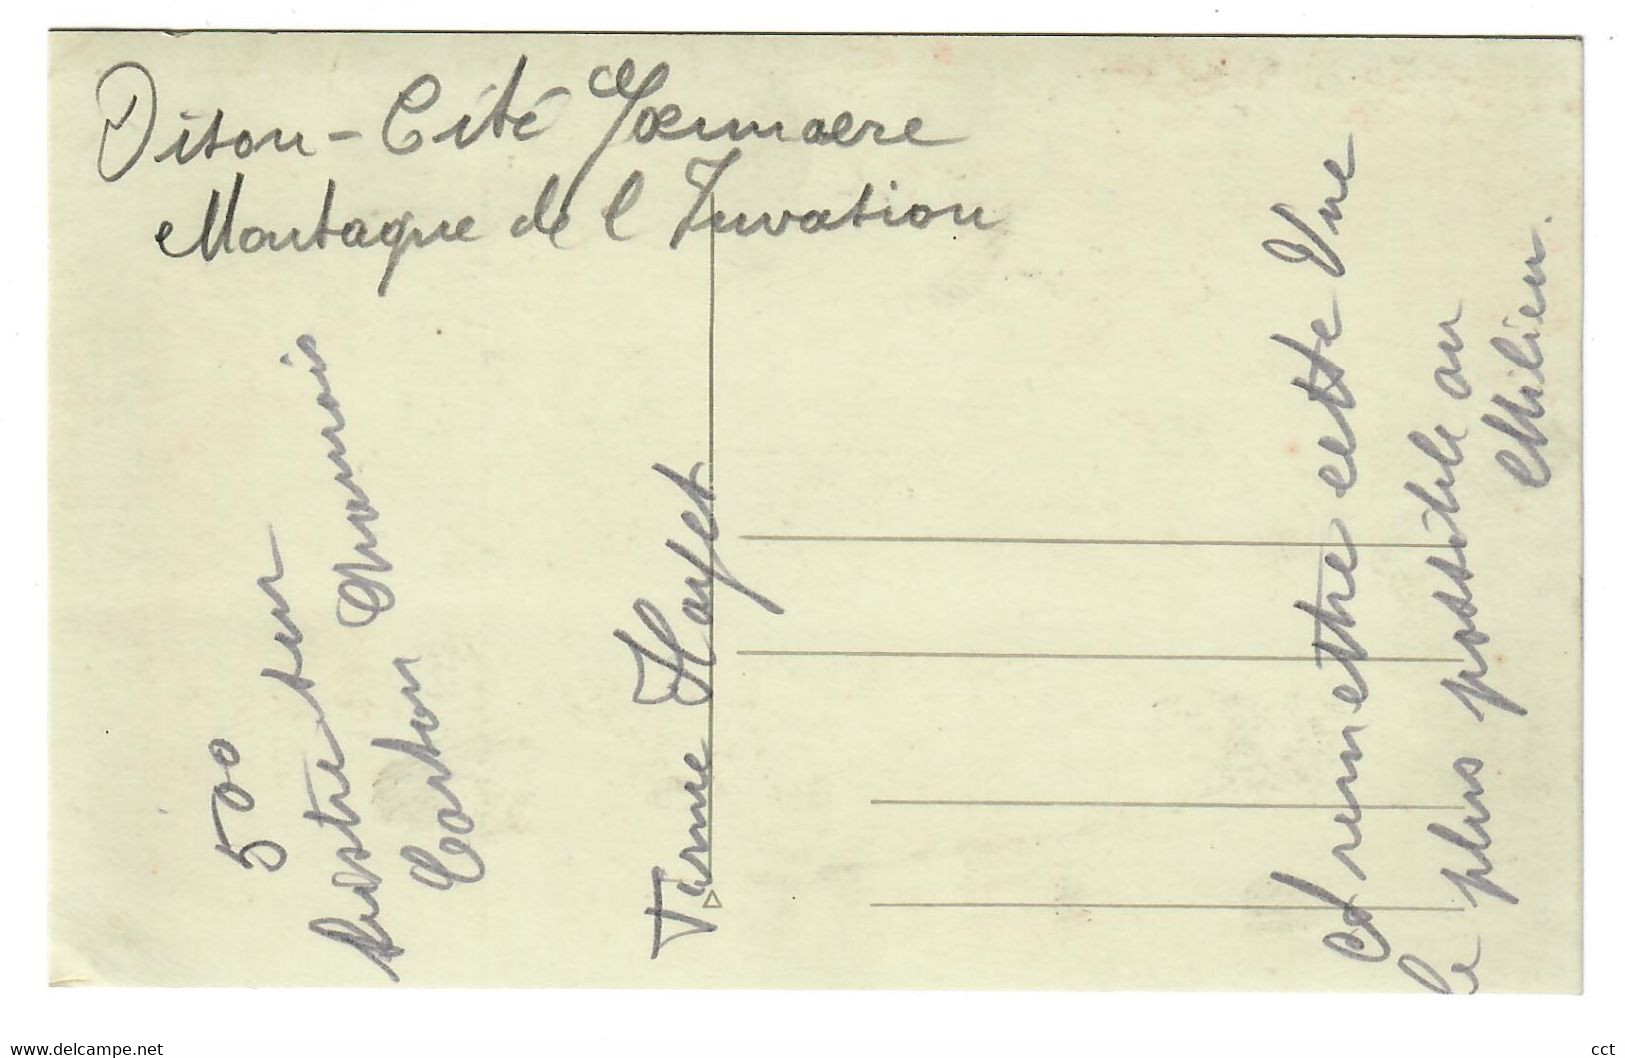 Dison - Cité Jaennaere
Montagne de l Invation
500
lustre sur
Carton Chamois
Tarme Hayet
A remettre cette Vue
le plus possible au
Milieu.
www.delcampe.net
cct